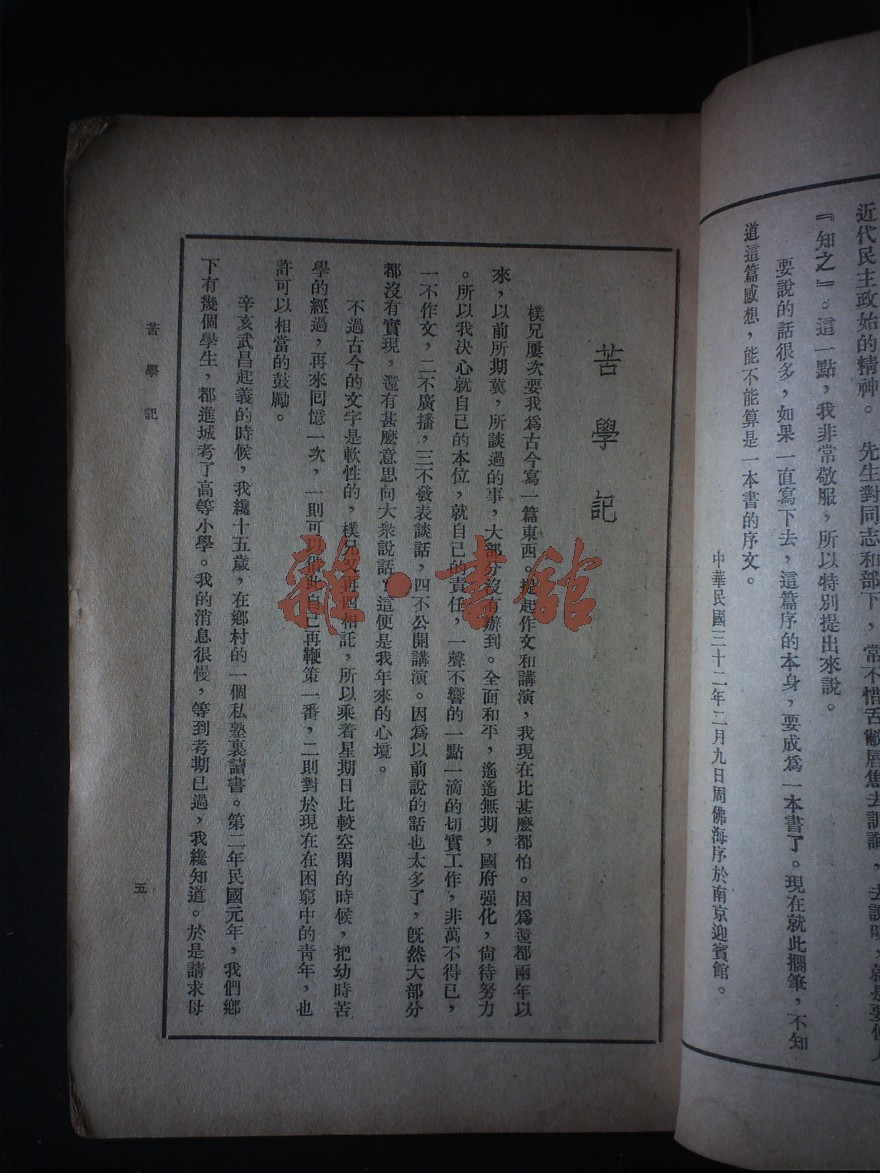 近代民主政始的精神。　先生對同志和部下，常不惜舌敝唇焦去訓誨，去說明，就是要使人
『知之』。這一點，我非常敬服，所以特別提出來說。
要說的話很多，如果一直寫下去，這篇序的本身，要成爲一本書了。現在就此擱筆，不知
道這篇感想，能不能算是一本書的序文。
中華民國三十二年二月九日周佛海序於南京迎賓館。
苦學記
樸兄屢次要我爲古今寫一篇東西。提起作文和講演，我現在比甚麽都怕。因爲還都兩年以
來，以前所期冀，所談過的事，大部分沒有辦到。全面和平，遙遙無期，國府强化，尙待努力
。所以我决心就自己的本位，就自己的責任，一聲不響的一點一滴的切實工作，非萬不得已，
一不作文，二不廣播，三不發表談話，四不公開講演。因爲以前說的話也太多了，旣然大部分
都沒有實現，還有甚麽意思向大衆說話？這便是我年來的心境。
不過古今的文字是軟性的，樸兄又再四相託，所以乘着星期日比較空閑的時候，把幼時苦
學的經過，再來回憶一次，一則可以借此自己再鞭策一番，二則對於現在在困窮中的靑年，也
許可以相當的鼓勵。
辛亥武昌起義的時候，我纔十五歲，在鄉村的一個私塾裏讀書。第二年民國元年，我們鄉
下有幾個學生，都進城考了高等小學。我的消息很慢，等到考期已過，我纔知道。於是請求母
苦學記
五
雜·書館